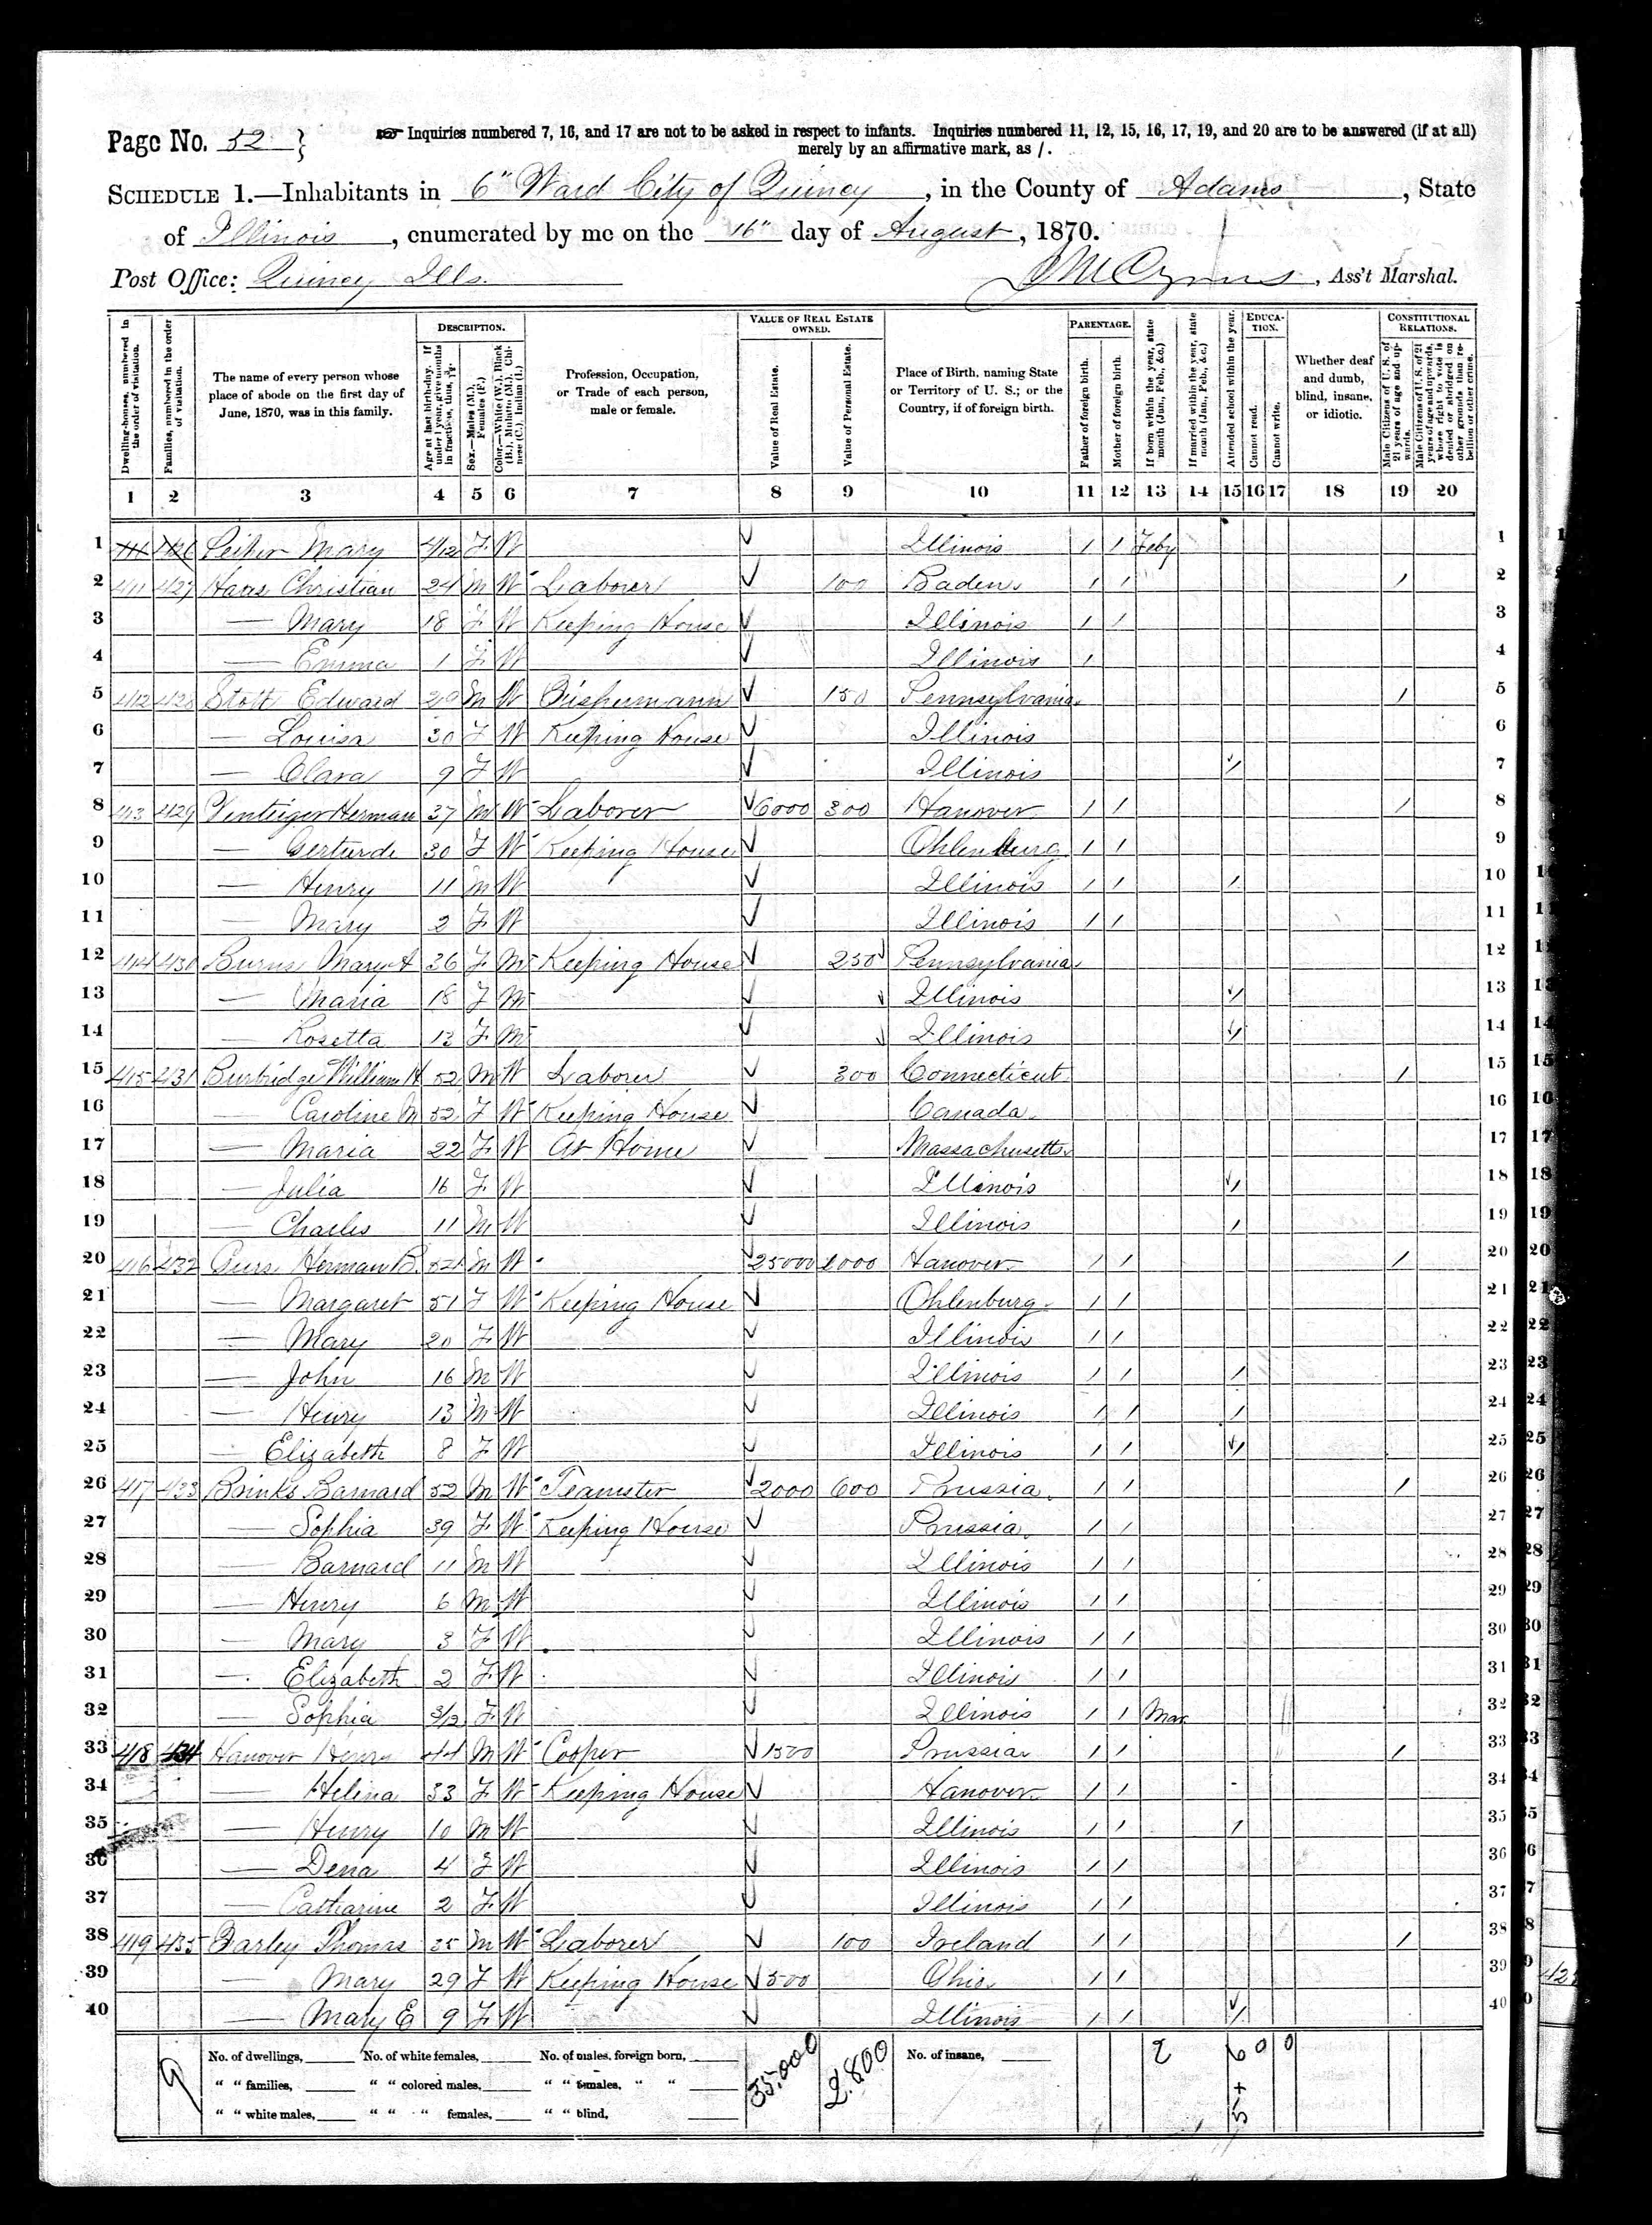 Page No. 52 }
Inquiries numbered 7, 16, and 17 are not to be asked in respect to infants. Inquiries numbered 11, 12, 15, 16, 17, 19, and 20 are to be answered (if at all)
merely by an affirmative mark, as /.
SCHEDULE 1.—Inhabitants in 6" Ward City of Quincy, in the County of Adams, State
of Illinois, enumerated by me on the 16" day of August, 1870.
Post Office: Quincy Ills. , Ass't Marshal.
Dwelling-houses, numbered in the order of visitation.
Families, numbered in the order of visitation.
The name of every person whose place of abode on the first day of June, 1870, was in this family.
DESCRIPTION.
Age at last birth-day. If under 1 year, give months in fractions, thus,
Sex.—Males (M.), Females (F.)
Color.—White (W.), Black (B.), Mulatto (M.), Chinese (C.), Indian (I.)
Profession, Occupation, or Trade of each person, male or female.
VALUE OF REAL ESTATE OWNED.
Value of Real Estate.
Value of Personal Estate.
Place of Birth, naming State or Territory of U. S.; or the Country, if of foreign birth.
PARENTAGE.
Father of foreign birth.
Mother of foreign birth.
If born within the year, state month (Jan., Feb., &c.)
If married within the year, state month (Jan., Feb., &c.)
Attended school within the year.
EDUCATION.
Cannot read.
Cannot write.
Whether deaf and dumb, blind, insane, or idiotic.
CONSTITUTIONAL RELATIONS.
Male Citizens of U. S. of 21 years of age and upwards.
Male Citizens of U. S. of 21 years of age and upwards, whose right to vote is denied or abridged on other grounds than rebellion or other crime.
1 2 3 4 5 6 7 8 9 10 11 12 13 14 15 16 17 18 19 20
1 Mary 4/12 F W Illinois / / Feby 1
2 411 427 Haas Christian 24 M W Laborer 100 Baden / / / 2
3 — Mary 18 F W Keeping House Illinois / / 3
4 — Emma 1 F W Illinois / 4
5 412 428 Stott Edward M W 150 Pennsylvania / 5
6 — Louisa 30 F W Keeping House Illinois 6
7 — Clara 9 F W Illinois / 7
8 413 429 Herman 37 M W Laborer 6000 300 Hanover / / / 8
9 — Gerturde 30 F W Keeping House Ohlenburg / / 9
10 — Henry 11 M W Illinois / / / 10
11 — Mary 2 F W Illinois / / 11
12 414 430 Burns Mary A 36 F M Keeping House 250 Pennsylvania 12
13 — Maria 18 F M Illinois / 13
14 — Rosetta 13 F M Illinois / 14
15 415 431 Burbridge William H 52 M W Laborer 300 Connecticut / 15
16 — Caroline M 52 F W Keeping House Canada 16
17 — Maria 22 F W At Home Massachusetts 17
18 — Julia 16 F W Illinois / 18
19 — Charles 11 M W Illinois / 19
20 416 432 Herman B. 52 M W 25000 1000 Hanover / / / 20
21 — Margaret 51 F W Keeping House Ohlenburg / / 21
22 — Mary 20 F W Illinois / / 22
23 — John 16 M W Illinois / / / 23
24 — Henry 13 M W Illinois / / / 24
25 — Elizabeth 8 F W Illinois / / / 25
26 417 433 Brinks Barnard 52 M W Teamster 2000 600 Prussia / / / 26
27 — Sophia 39 F W Keeping House Prussia / / 27
28 — Barnard 11 M W Illinois / / 28
29 — Henry 6 M W Illinois / / 29
30 — Mary 3 F W Illinois / / 30
31 — Elizabeth 2 F W Illinois / / 31
32 — Sophia 3/12 F W Illinois / / Mar. 32
33 418 434 Hanover Henry 44 M W Cooper 1500 Prussia / / / 33
34 — Helina 33 F W Keeping House Hanover / / 34
35 — Henry 10 M W Illinois / / / 35
36 — Dena 4 F W Illinois / / 36
37 — Catharine 2 F W Illinois / / 37
38 419 435 Thomas 35 M W Laborer 100 Ireland / / / 38
39 — Mary 29 F W Keeping House 500 Ohio / / 39
40 — Mary E 9 F W Illinois / / / 40
9
No. of dwellings, No. of white females, No. of males, foreign born, No. of insane,
" " families, " " colored males, " " females, " "
" " white males, " " " females, " " blind,
35,000 2.800 2 5+6 0 0